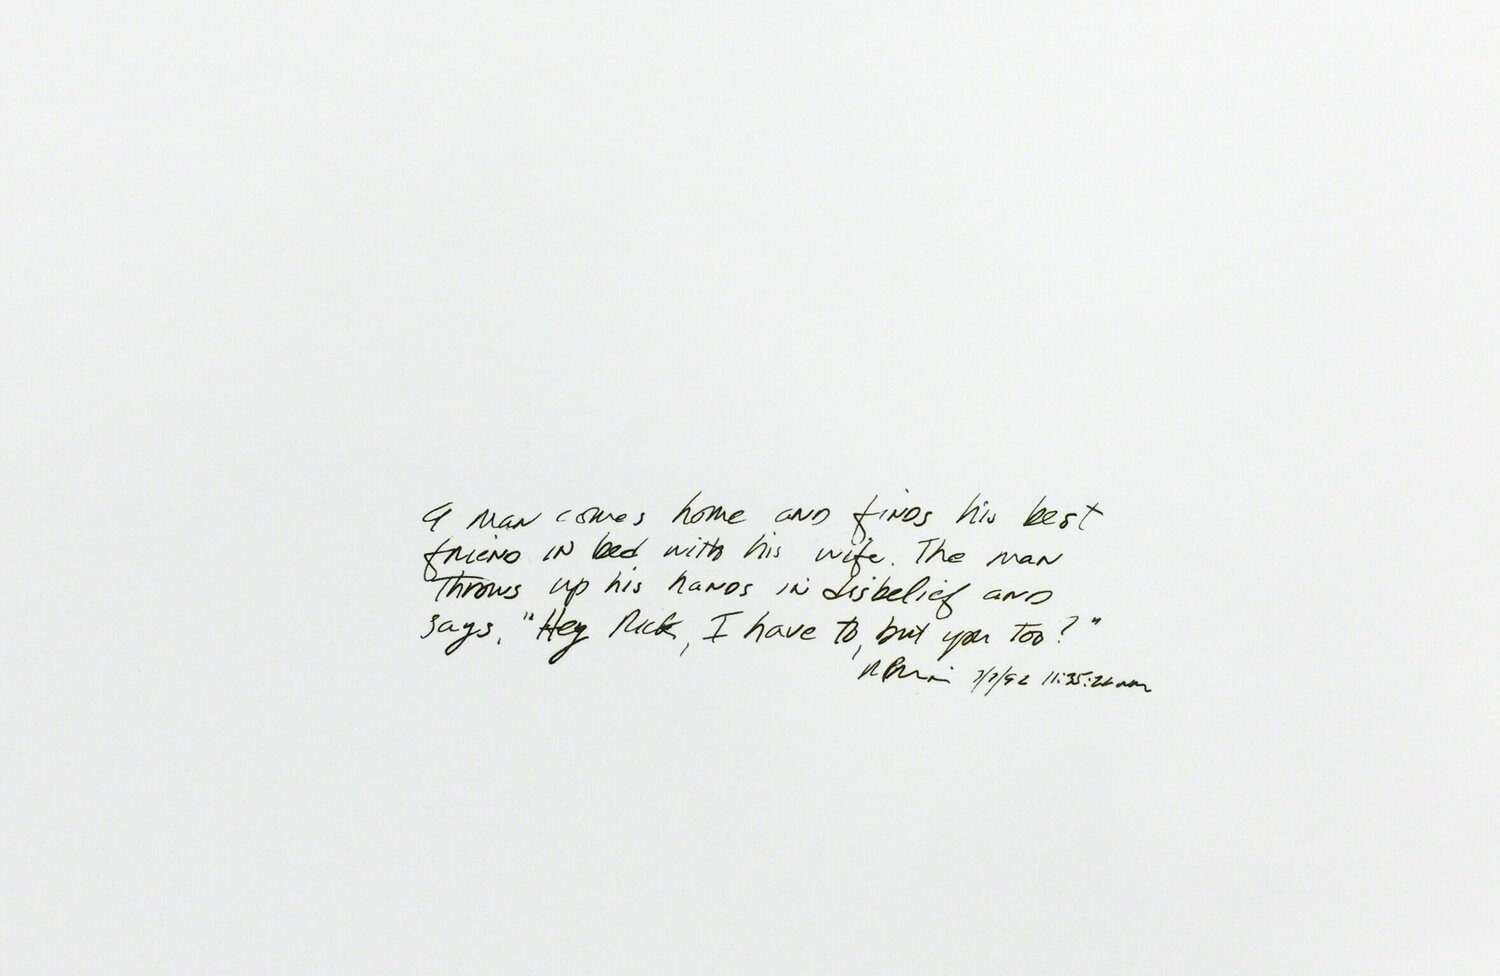 A man comes home and finds his best
friend in bed with his wife. The man
throws up his hands in disbelief and
says, "Hey Rick, I have to, but you too?"
11:35:26 am